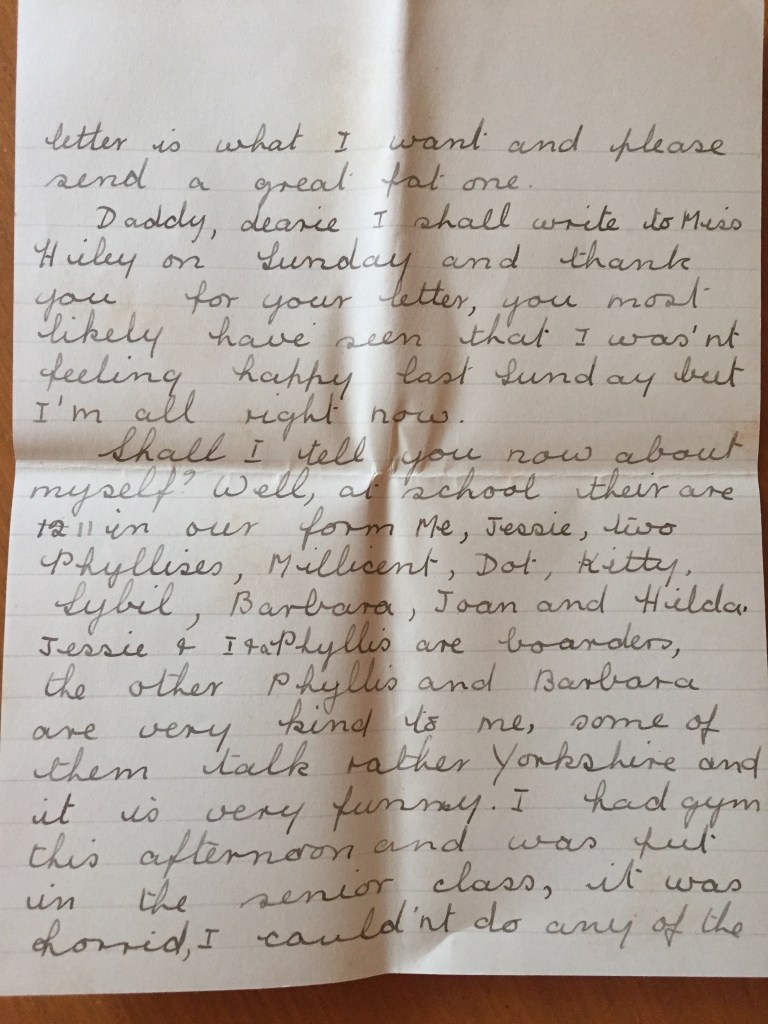 letter is what I want and please
send a great fat one.
Daddy, dearie I shall write to Miss
Hiley on Sunday and thank
you for your letter, you most
likely have seen that I was'nt
feeling happy last Sunday but
I'm all right now.
Shall I tell you now about
myself? Well, at school their are
12 11 in our form Me, Jessie, two
Phyllises, Millicent, Dot, Kitty,
Sybil, Barbara, Joan and Hilda.
Jessie & I & a Phyllis are boarders,
the other Phyllis and Barbara
are very kind to me, some of
them talk rather Yorkshire and
it is very funny. I had gym
this afternoon and was put
in the senior class, it was
horrid, I could'nt do any of the